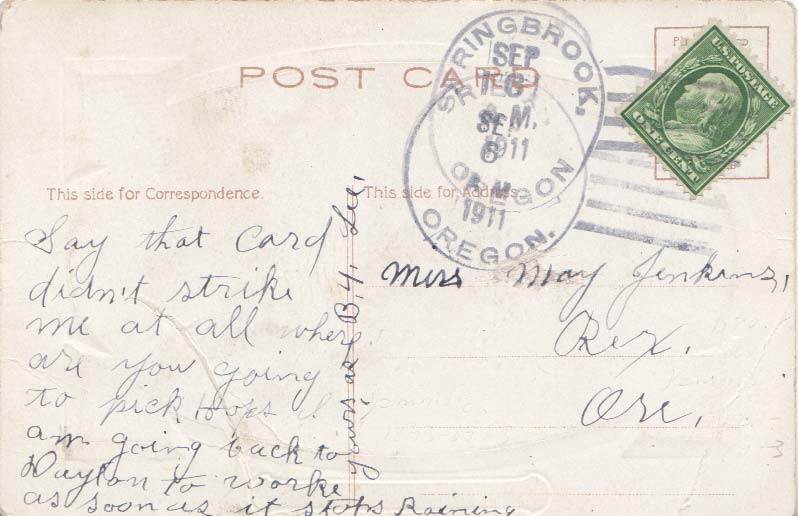 POST CARD
SPRINGBROOK,
SEP
6
A.M.
1911
OREGON
SEP
6
A.M.
1911
OREGON.
U.S. POSTAGE
ONE CENT
This side for Correspondence.
This side for Address.
Say that Card
didn't strike
me at all where
are you going
to pick hops I
am going back to
Dayton to worke
as soon as it stops Raining
yours as B.4. Lee,
Miss May Jenkins,
Rex,
Ore,